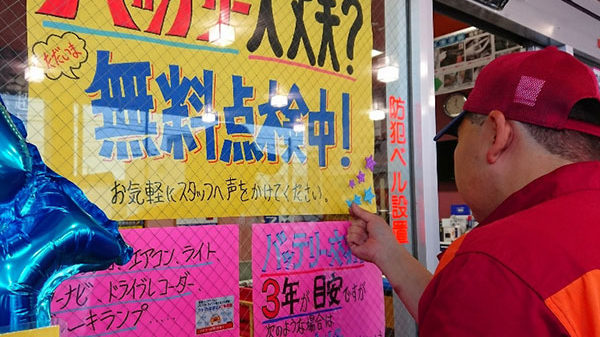 バッテリー大丈夫?
ただいま
無料点検中!
お気軽にスタッフへ声をかけてください。
防犯ベル設置
エアコン、ライト
ナビ、ドライブレコーダー
キランプ.....
バッテリー
3年が目安ですが
次のような場合は